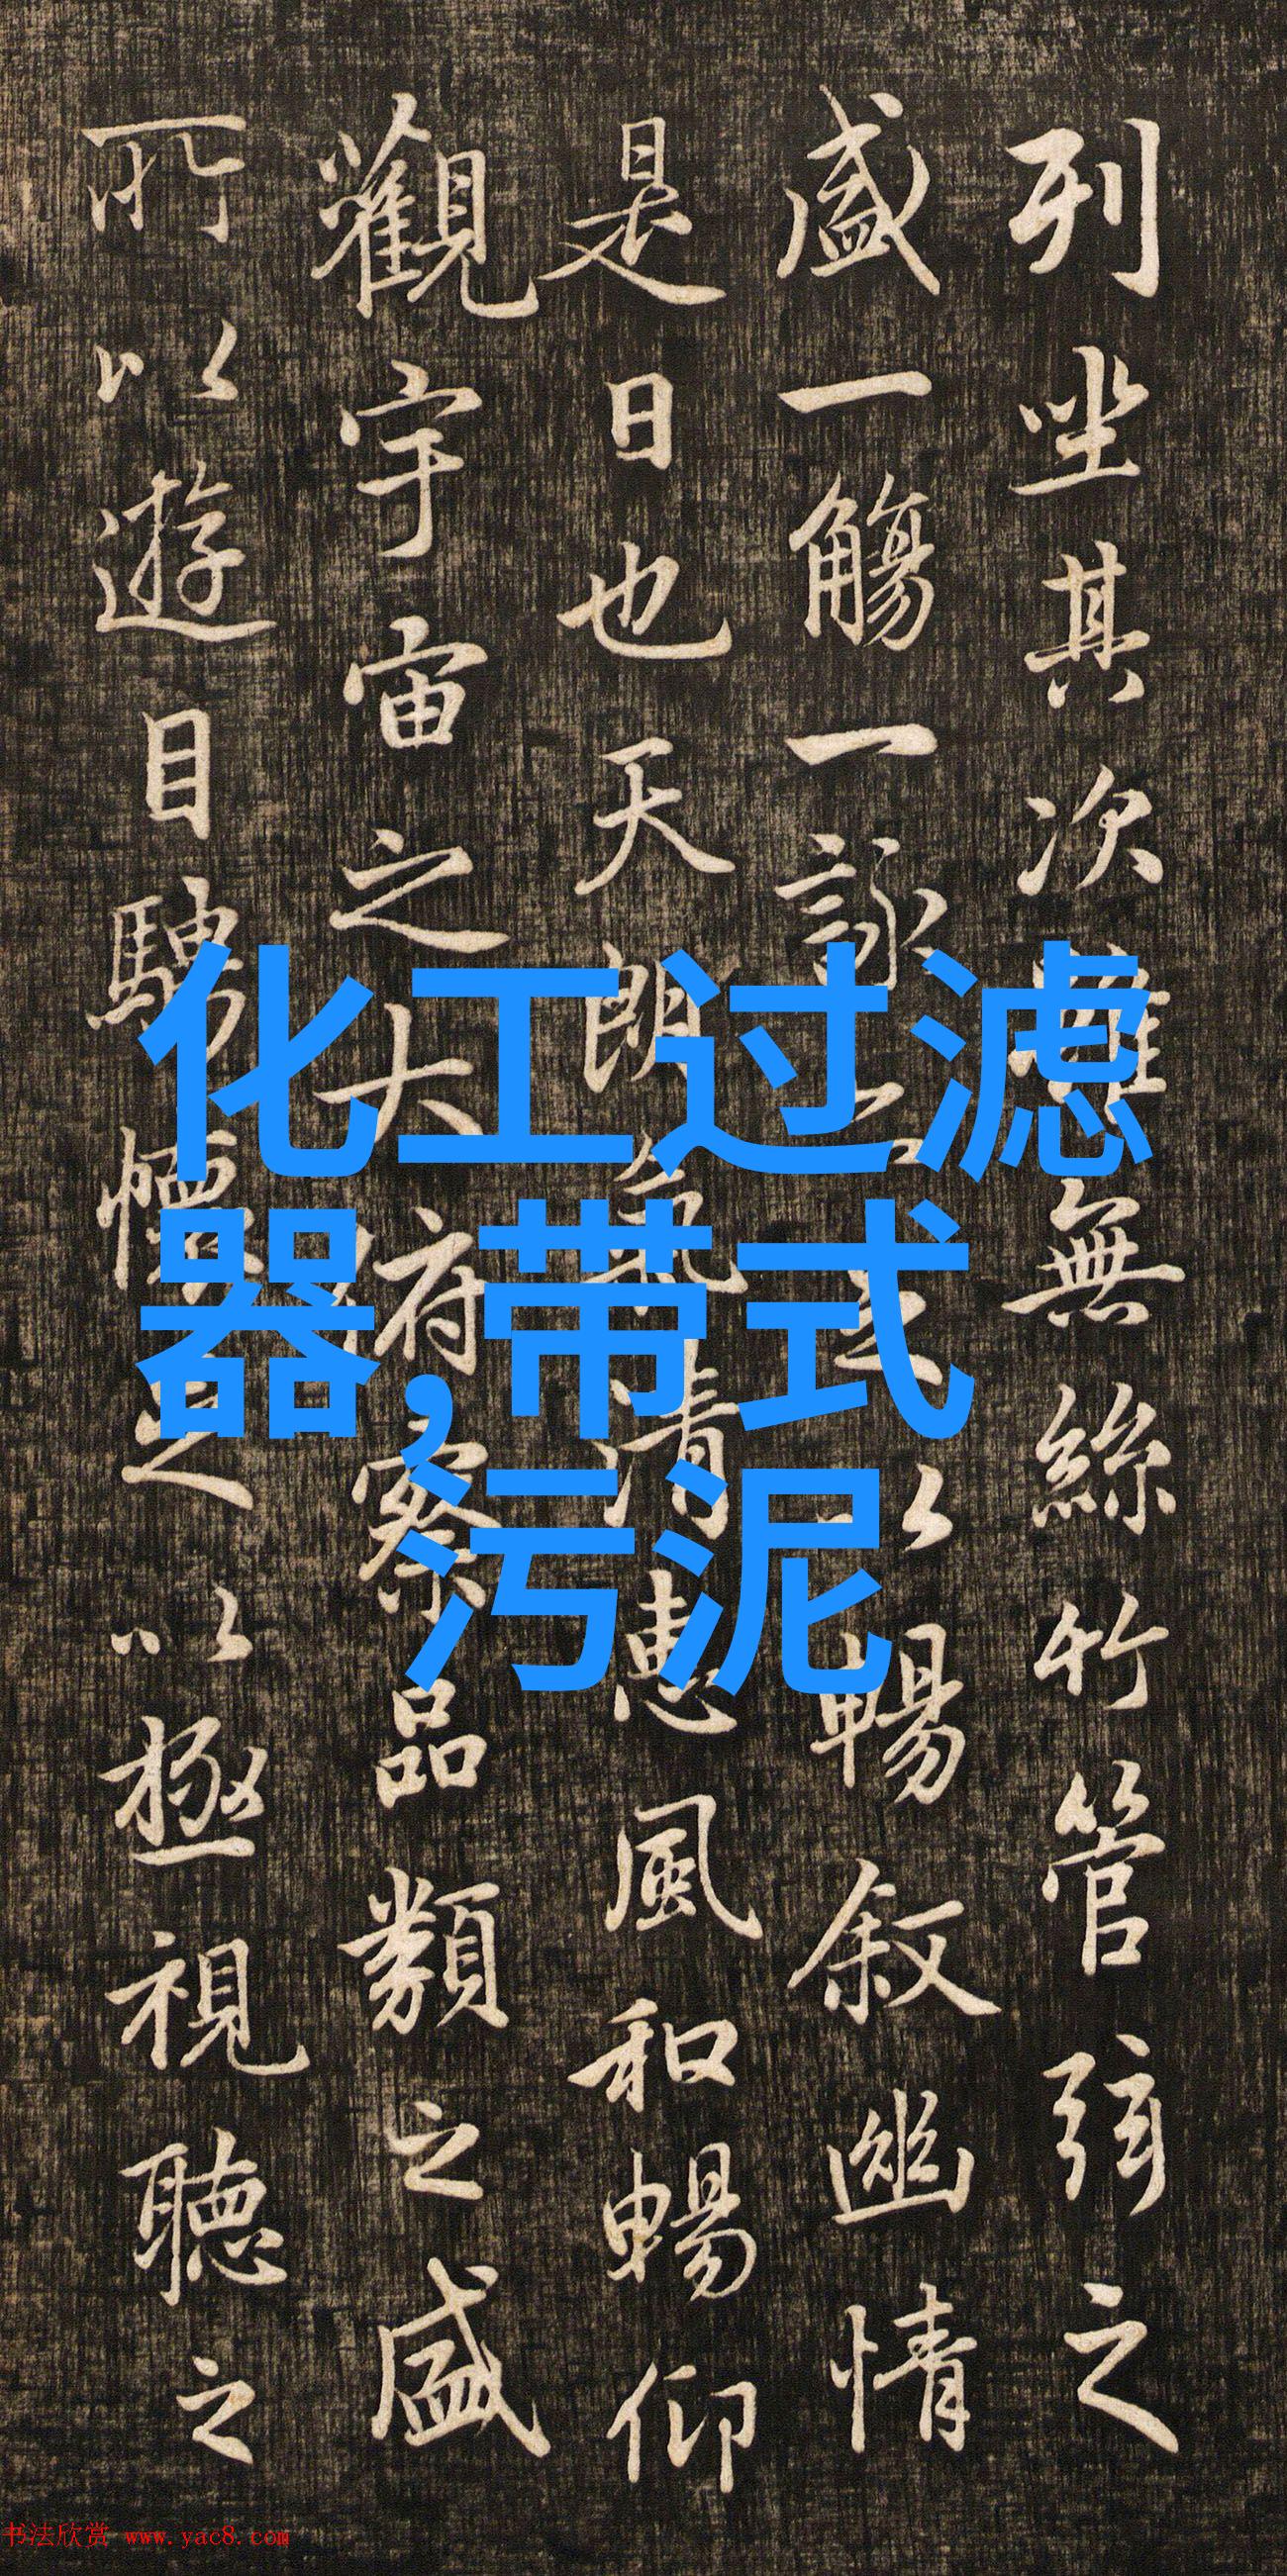 列坐其次雖無絲竹管弦之
盛一觴一詠亦足以暢叙幽情
是日也天朗氣清惠風和暢仰
觀宇宙之大俯察品類之盛
所以遊目騁懷足以極視聽之
化工过滤
器,带式
污泥
书法欣赏 www.yac8.com